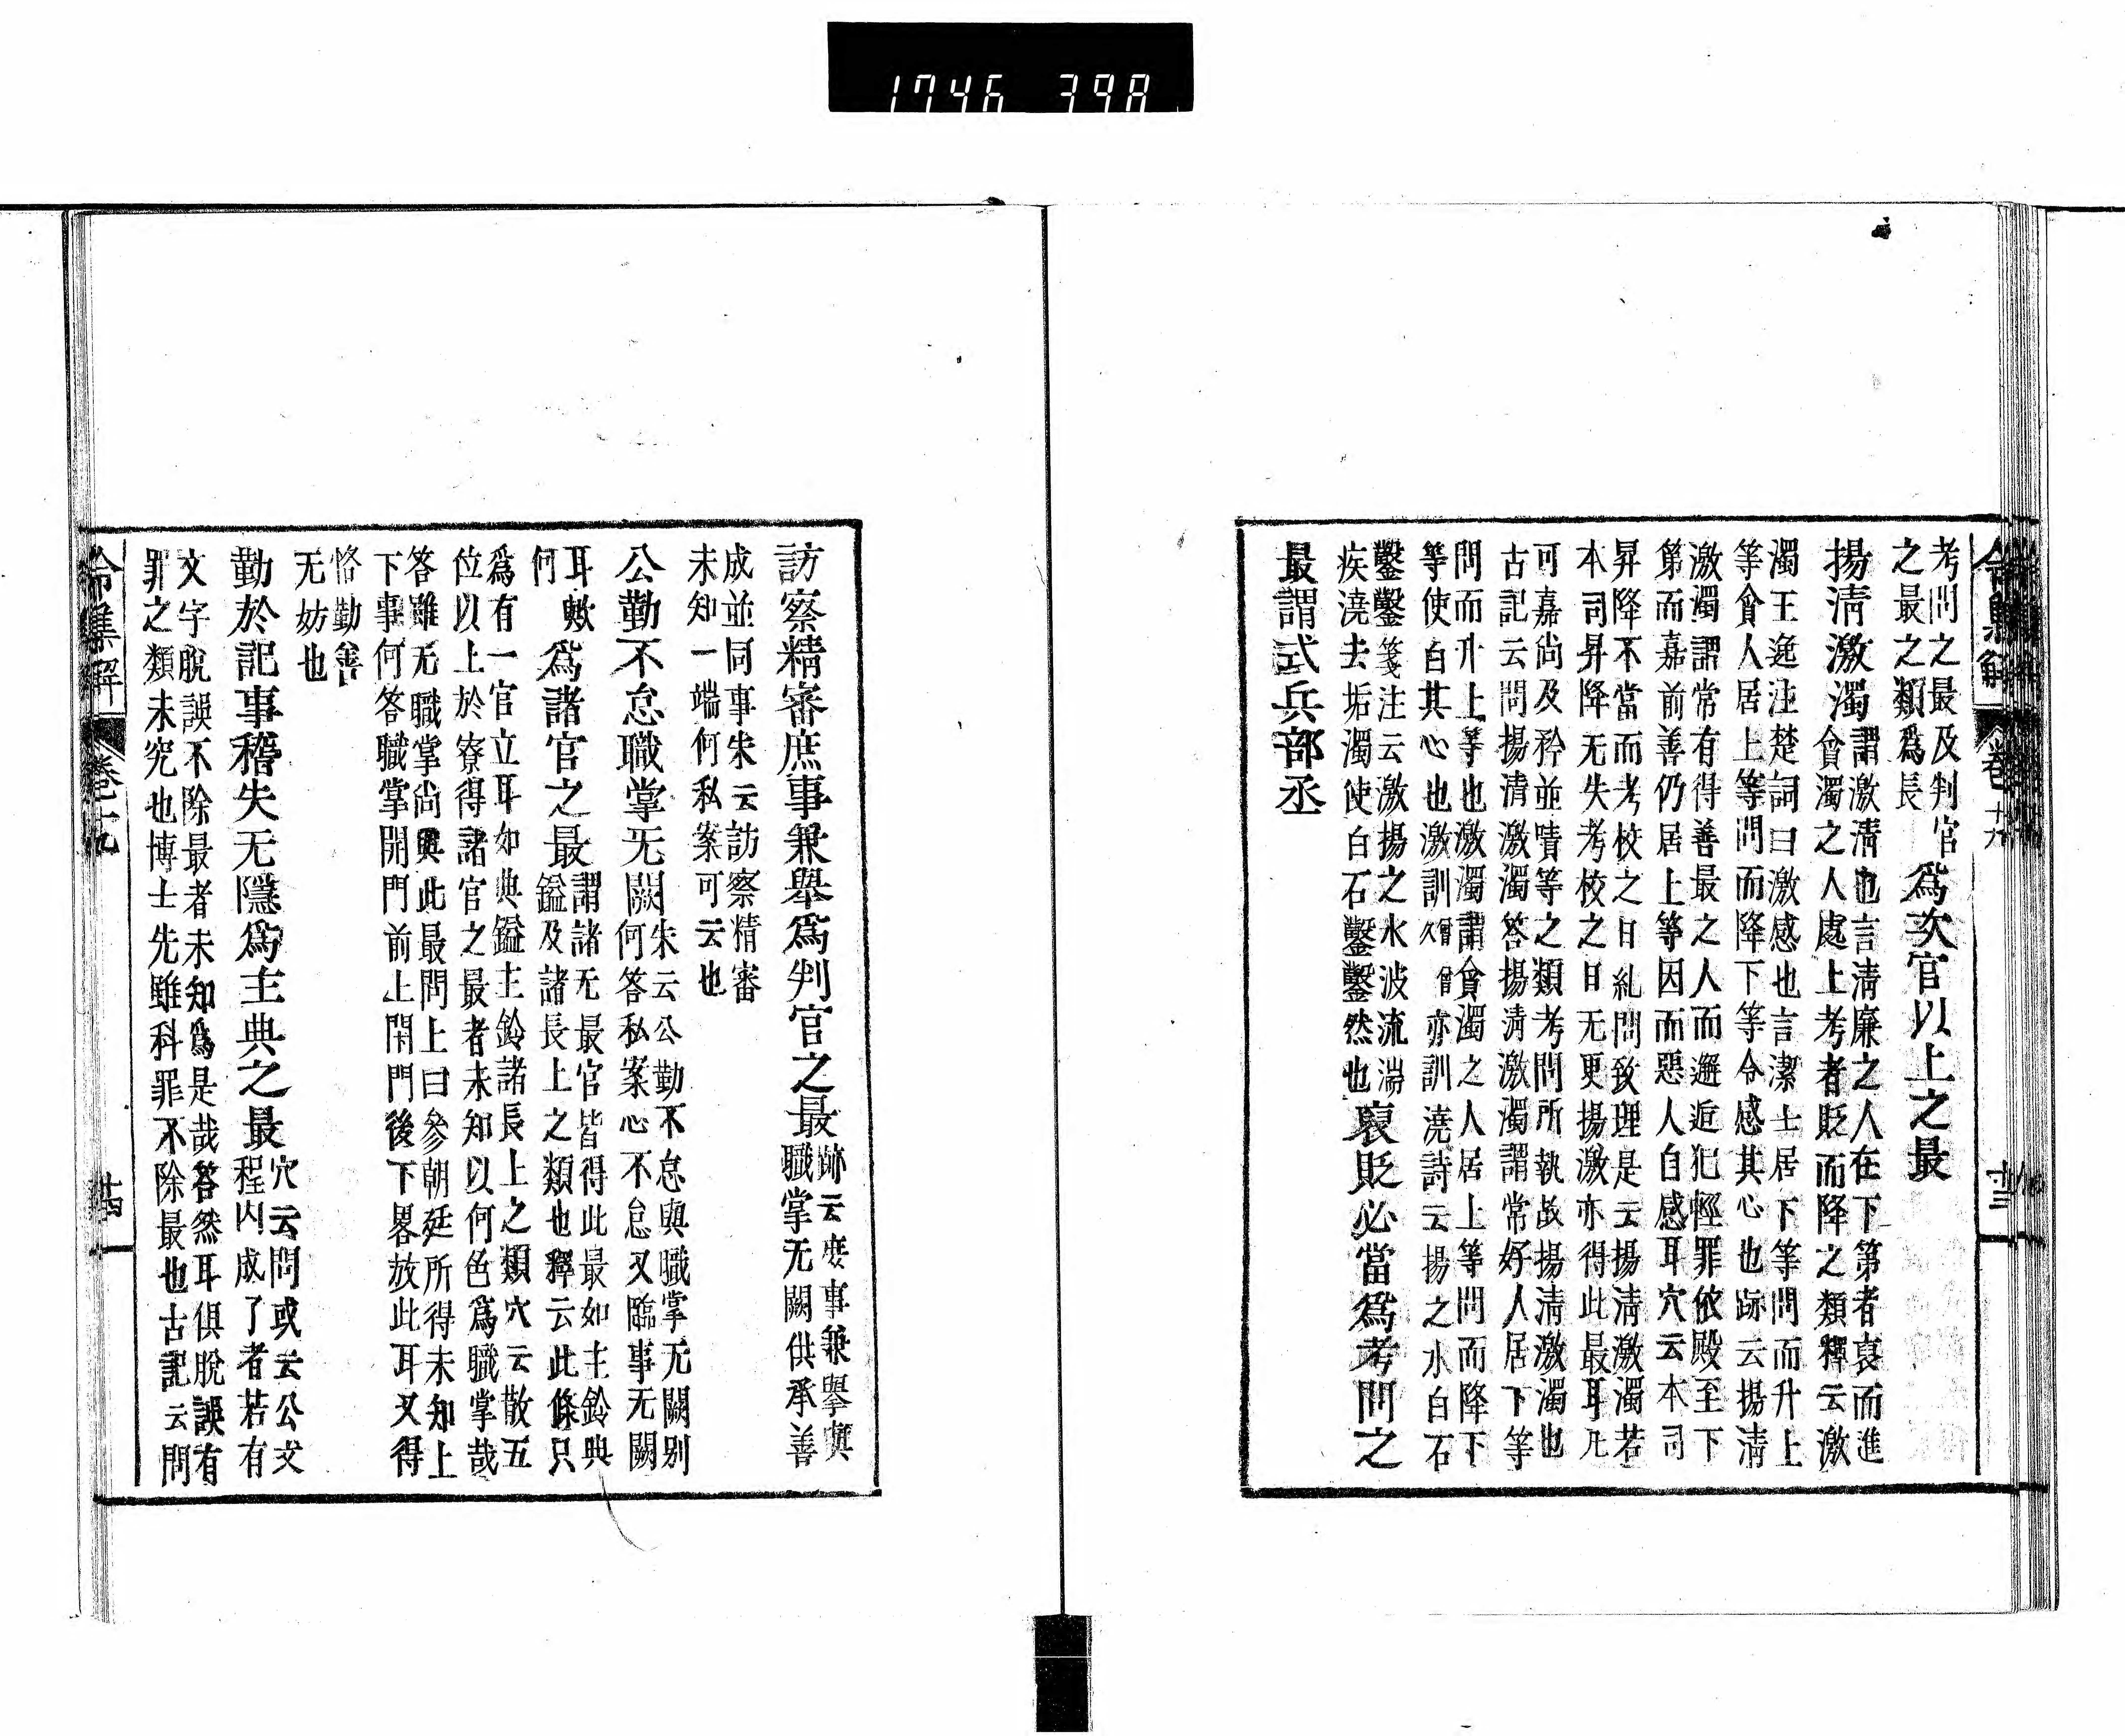 1746 398
令集解 卷十九 廿三
考問之最及判官
之最之類爲長
爲次官以上之最
揚淸激濁
謂激淸也言淸廉之人在下第者裒而進
貪濁之人處上考者貶而降之類釋云激
濁王逸注楚詞曰激感也言潔士居下等問而升上
等貪人居上等問而降下等令感其心也跡云揚淸
激濁謂常有得善最之人而邂逅犯輕罪依殿至下
第而嘉前善仍居上等因而惡人自感耳穴云本司
昇降不當而考校之日糺問致理是云揚淸激濁若
本司昇降无失考校之日无更揚激亦得此最耳凡
可嘉尚及矜並嘖等之類考問所執故揚淸激濁也
古記云問揚淸激濁答揚淸激濁謂常好人居下等
問而升上等也激濁謂貪濁之人居上等問而降下
等使白其心也激訓 僧亦訓澆詩云揚之水白石
鑿鑿箋注云激揚之水波流湍
疾澆去垢濁使白石鑿鑿然也
裒貶必當爲考問之
最謂式兵部丞
訪察精審庶事兼舉爲判官之最
跡云庶事兼擧與
職掌无闕供承善
成並同事朱云訪察精審
未知一端何私案可云也
公勤不怠職掌无闕
朱云公勤不怠與職掌无闕別
何答私案心不怠又臨事无闕
耳歟
何
爲諸官之最
謂諸无最官皆得此最如主鈴典
鎰及諸長上之類也釋云此條只
爲有一官立耳如典鎰主鈴諸長上之類穴云散五
位以上於寮得諸官之最者未知以何色爲職掌哉
答雖无職掌尚與此最問上曰參朝延所得未知上
下事何答職掌開門前上閇門後下畧放此耳又得
恪勤善
无妨也
勤於記事稽失无隱爲主典之最
穴云問或云公文
程內成了者若有
文字脫誤不除最者未知爲是哉答然耳俱脫誤有
罪之類未究也博士先雖科罪不除最也古記云問
令集解 卷十九 廿四